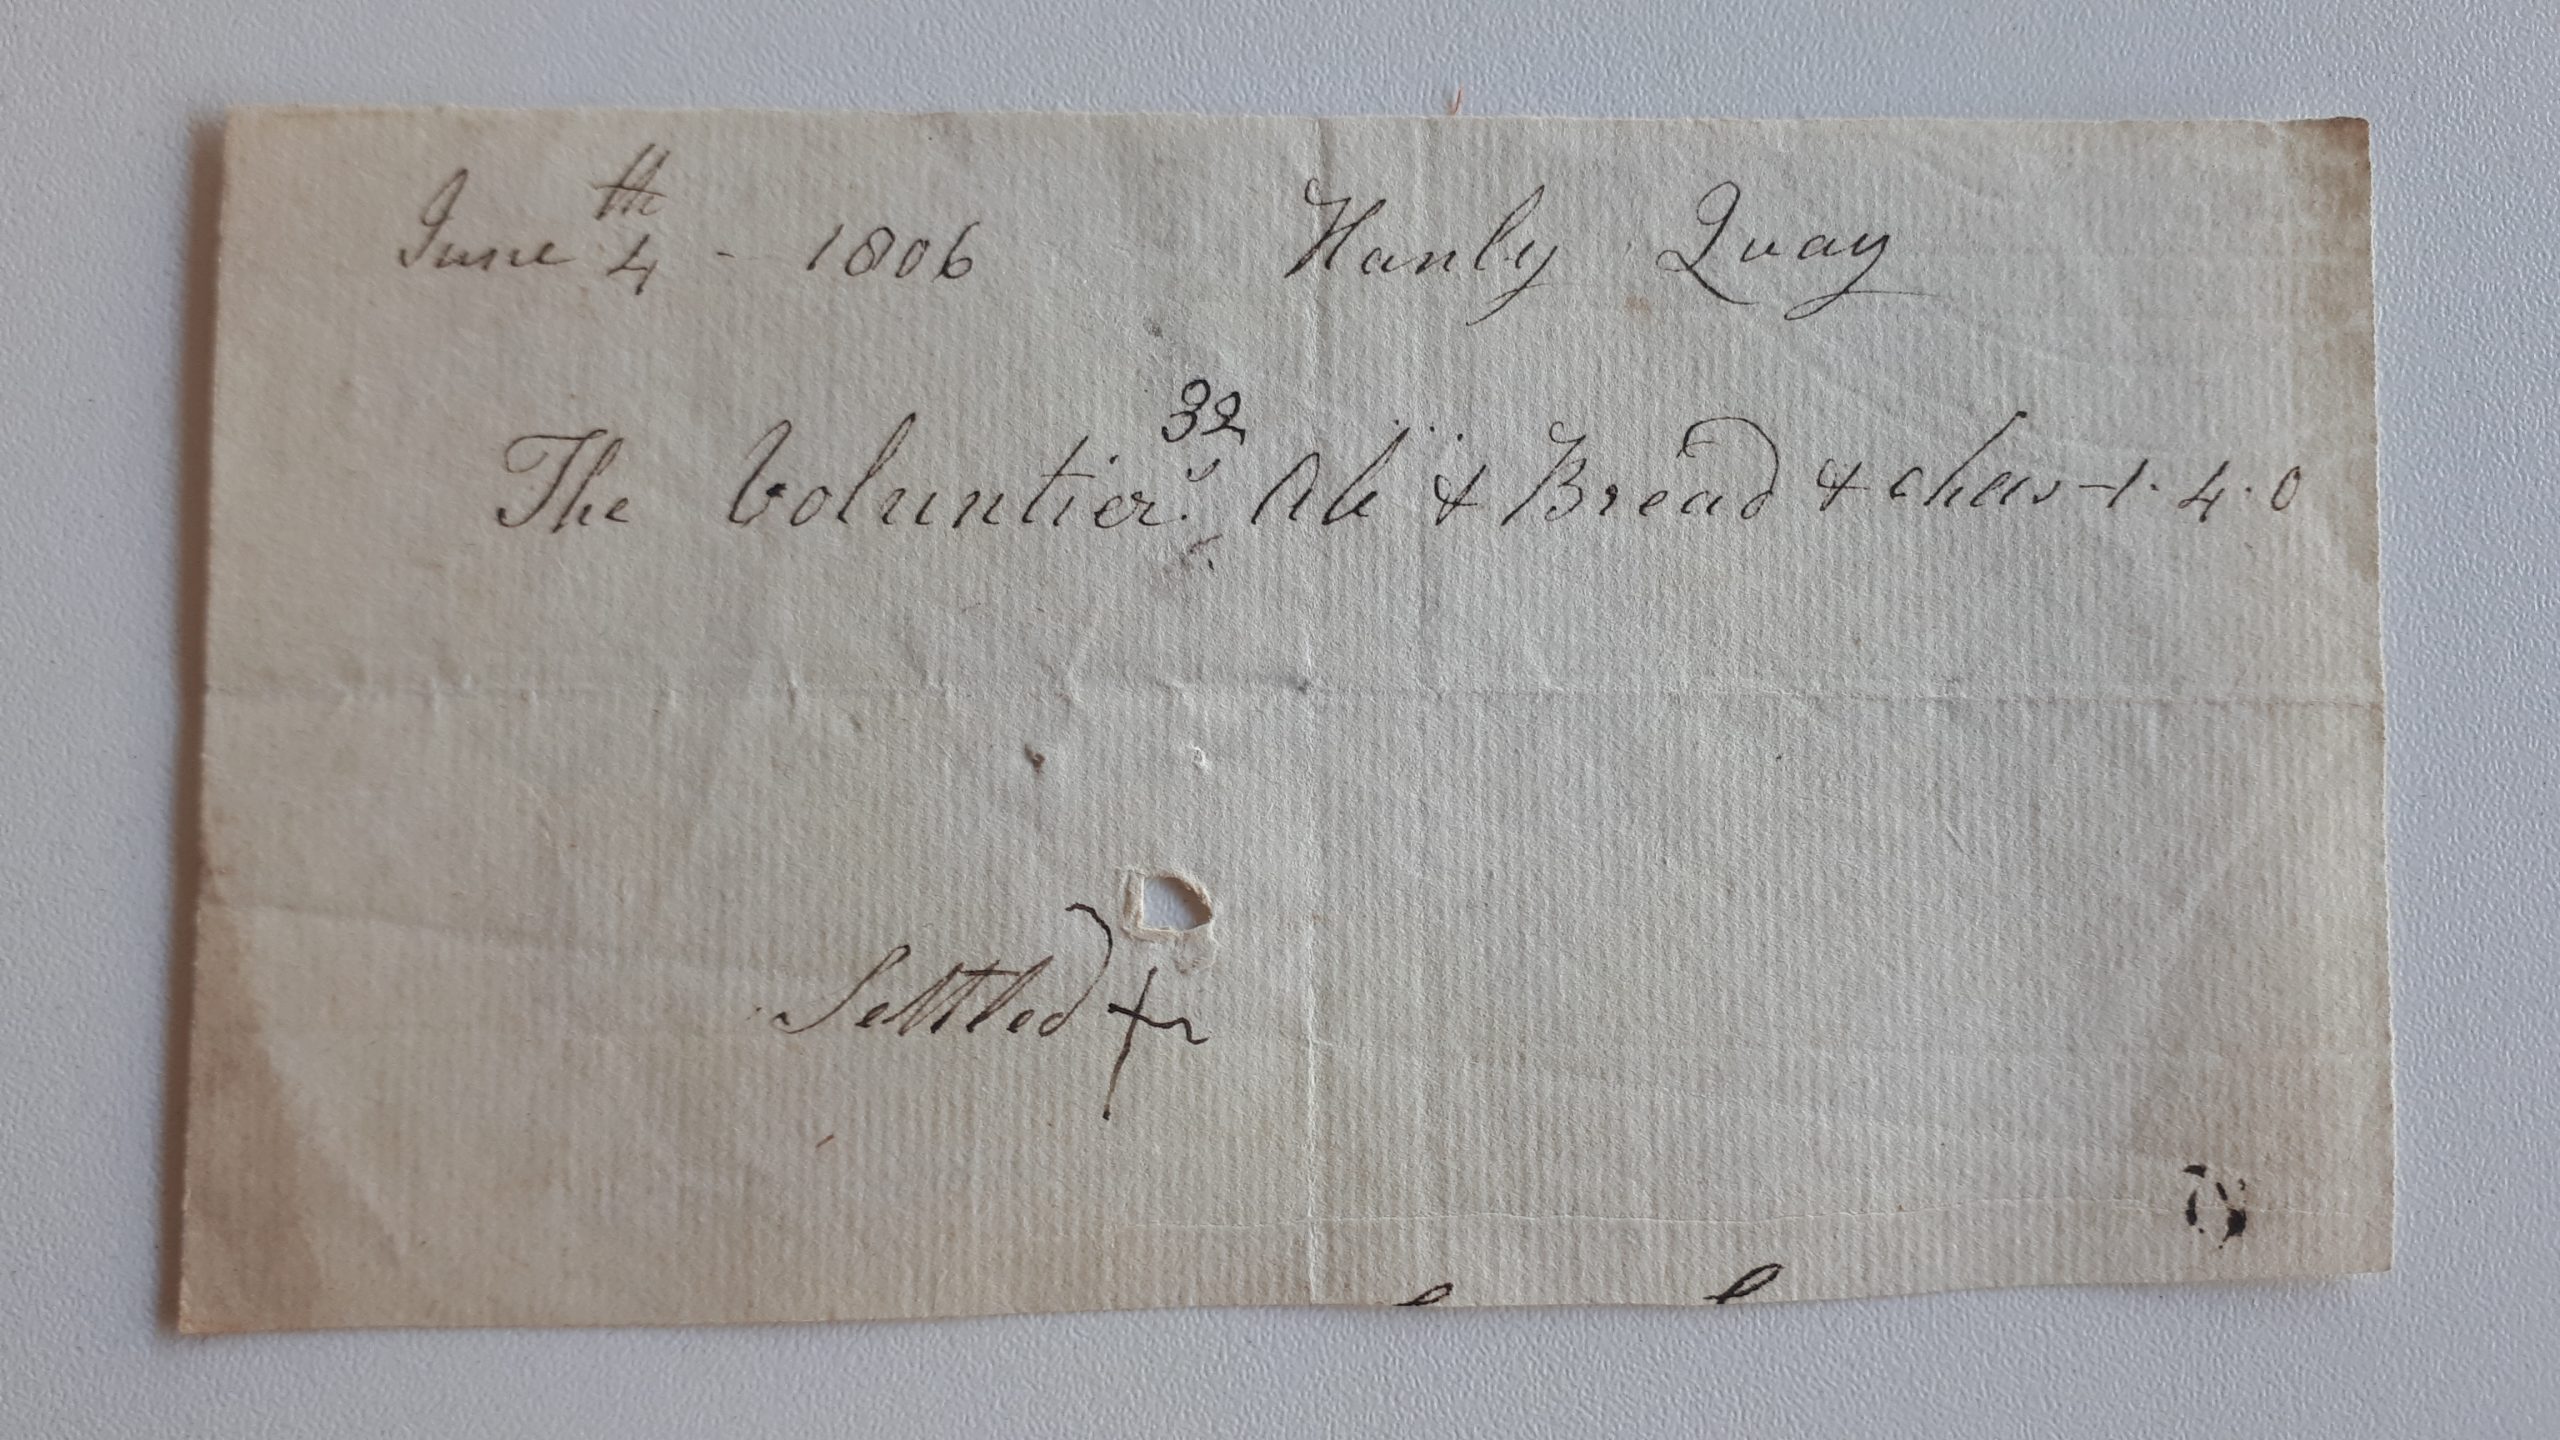 June 4th - 1806 Hanly Quay
32
The Voluntiers Ale & Bread & Chees - 1. 4. 0
Settled